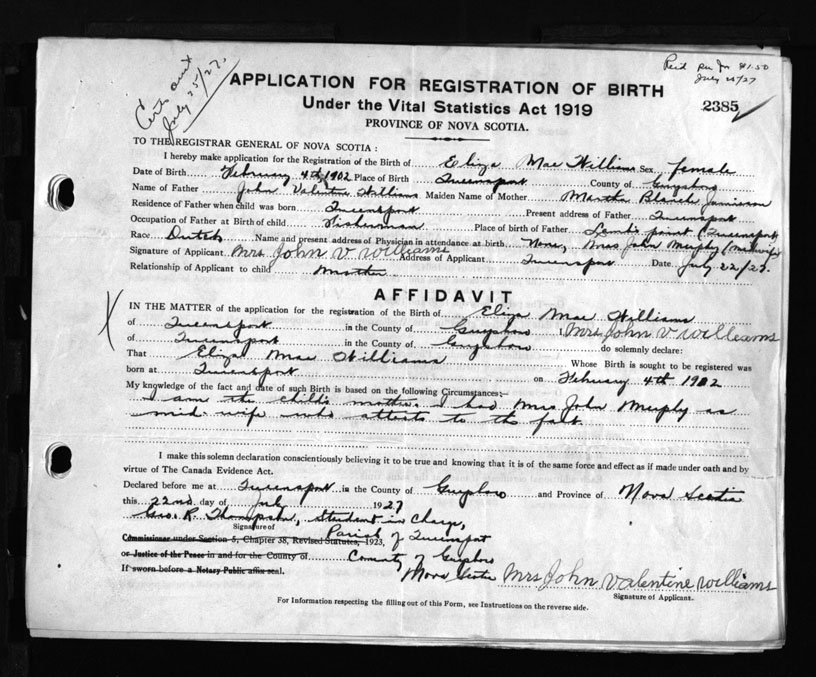 Cert sent
July 25/27.
Paid for $1.50
July 25/27
APPLICATION FOR REGISTRATION OF BIRTH
Under the Vital Statistics Act 1919
2385
PROVINCE OF NOVA SCOTIA.
TO THE REGISTRAR GENERAL OF NOVA SCOTIA :
I hereby make application for the Registration of the Birth of Eliza Mae Williams Sex female
Date of Birth February 4th, 1902 Place of Birth Queensport County of Guysboro
Name of Father John Valentine Williams Maiden Name of Mother Martha Blanch Jamieson
Residence of Father when child was born Queensport Present address of Father Queensport
Occupation of Father at Birth of child Fisherman Place of birth of Father point (Queensport
Race Dutch Name and present address of Physician in attendance at birth None, Mrs John Murphy (Midwife
Signature of Applicant Mrs John V Williams Address of Applicant Queensport Date July 22/27.
Relationship of Applicant to child Mother
AFFIDAVIT
IN THE MATTER of the application for the registration of the Birth of Eliza Mae Williams
of Queensport in the County of Guysboro I, Mrs John V Williams
of Queensport in the County of Guysboro do solemnly declare:
That Eliza Mae Williams Whose Birth is sought to be registered was
born at Queensport on February 4th 1902
My knowledge of the fact and date of such Birth is based on the following Circumstances;—
I am the child's mother. I had Mrs John Murphy as
mid-wife who attests to the fact.
I make this solemn declaration conscientiously believing it to be true and knowing that it is of the same force and effect as if made under oath and by
virtue of The Canada Evidence Act.
Declared before me at Queensport in the County of Guysboro and Province of Nova Scotia
this 22nd day of July 1927
Geo. R. Thompson, Student in Charge,
Signature of
Parish of Queensport
Commissioner under Section 5, Chapter 38, Revised Statutes, 1923,
or Justice of the Peace in and for the County of County of Guysboro
If sworn before a Notary Public affix seal. Nova Scotia Mrs John Valentine Williams
Signature of Applicant.
For Information respecting the filling out of this Form, see Instructions on the reverse side.